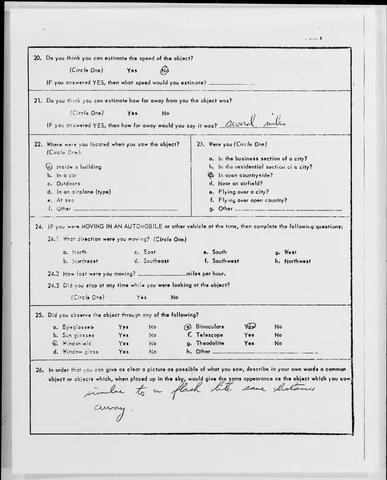 4
20. Do you think you can estimate the speed of the object?
(Circle One) Yes No
IF you answered YES, then what speed would you estimate?
21. Do you think you can estimate how far away from you the object was?
(Circle One) Yes No
IF you answered YES, then how far away would you say it was? several miles
22. Where were you located when you saw the object?
(Circle One):
a. Inside a building
b. In a car
c. Outdoors
d. In an airplane (type)
e. At sea
f. Other
23. Were you (Circle One)
a. In the business section of a city?
b. In the residential section of a city?
c. In open countryside?
d. Near an airfield?
e. Flying over a city?
f. Flying over open country?
g. Other
24. IF you were MOVING IN AN AUTOMOBILE or other vehicle at the time, then complete the following questions:
24.1 What direction were you moving? (Circle One)
a. North c. East e. South g. West
b. Northeast d. Southeast f. Southwest h. Northwest
24.2 How fast were you moving? miles per hour.
24.3 Did you stop at any time while you were looking at the object?
(Circle One) Yes No
25. Did you observe the object through any of the following?
a. Eyeglasses Yes No e. Binoculars Yes No
b. Sun glasses Yes No f. Telescope Yes No
c. Windshield Yes No g. Theodolite Yes No
d. Window glass Yes No h. Other
26. In order that you can give as clear a picture as possible of what you saw, describe in your own words a common
object or objects which, when placed up in the sky, would give the same appearance as the object which you saw.
similar to a flash lite same distance
away.